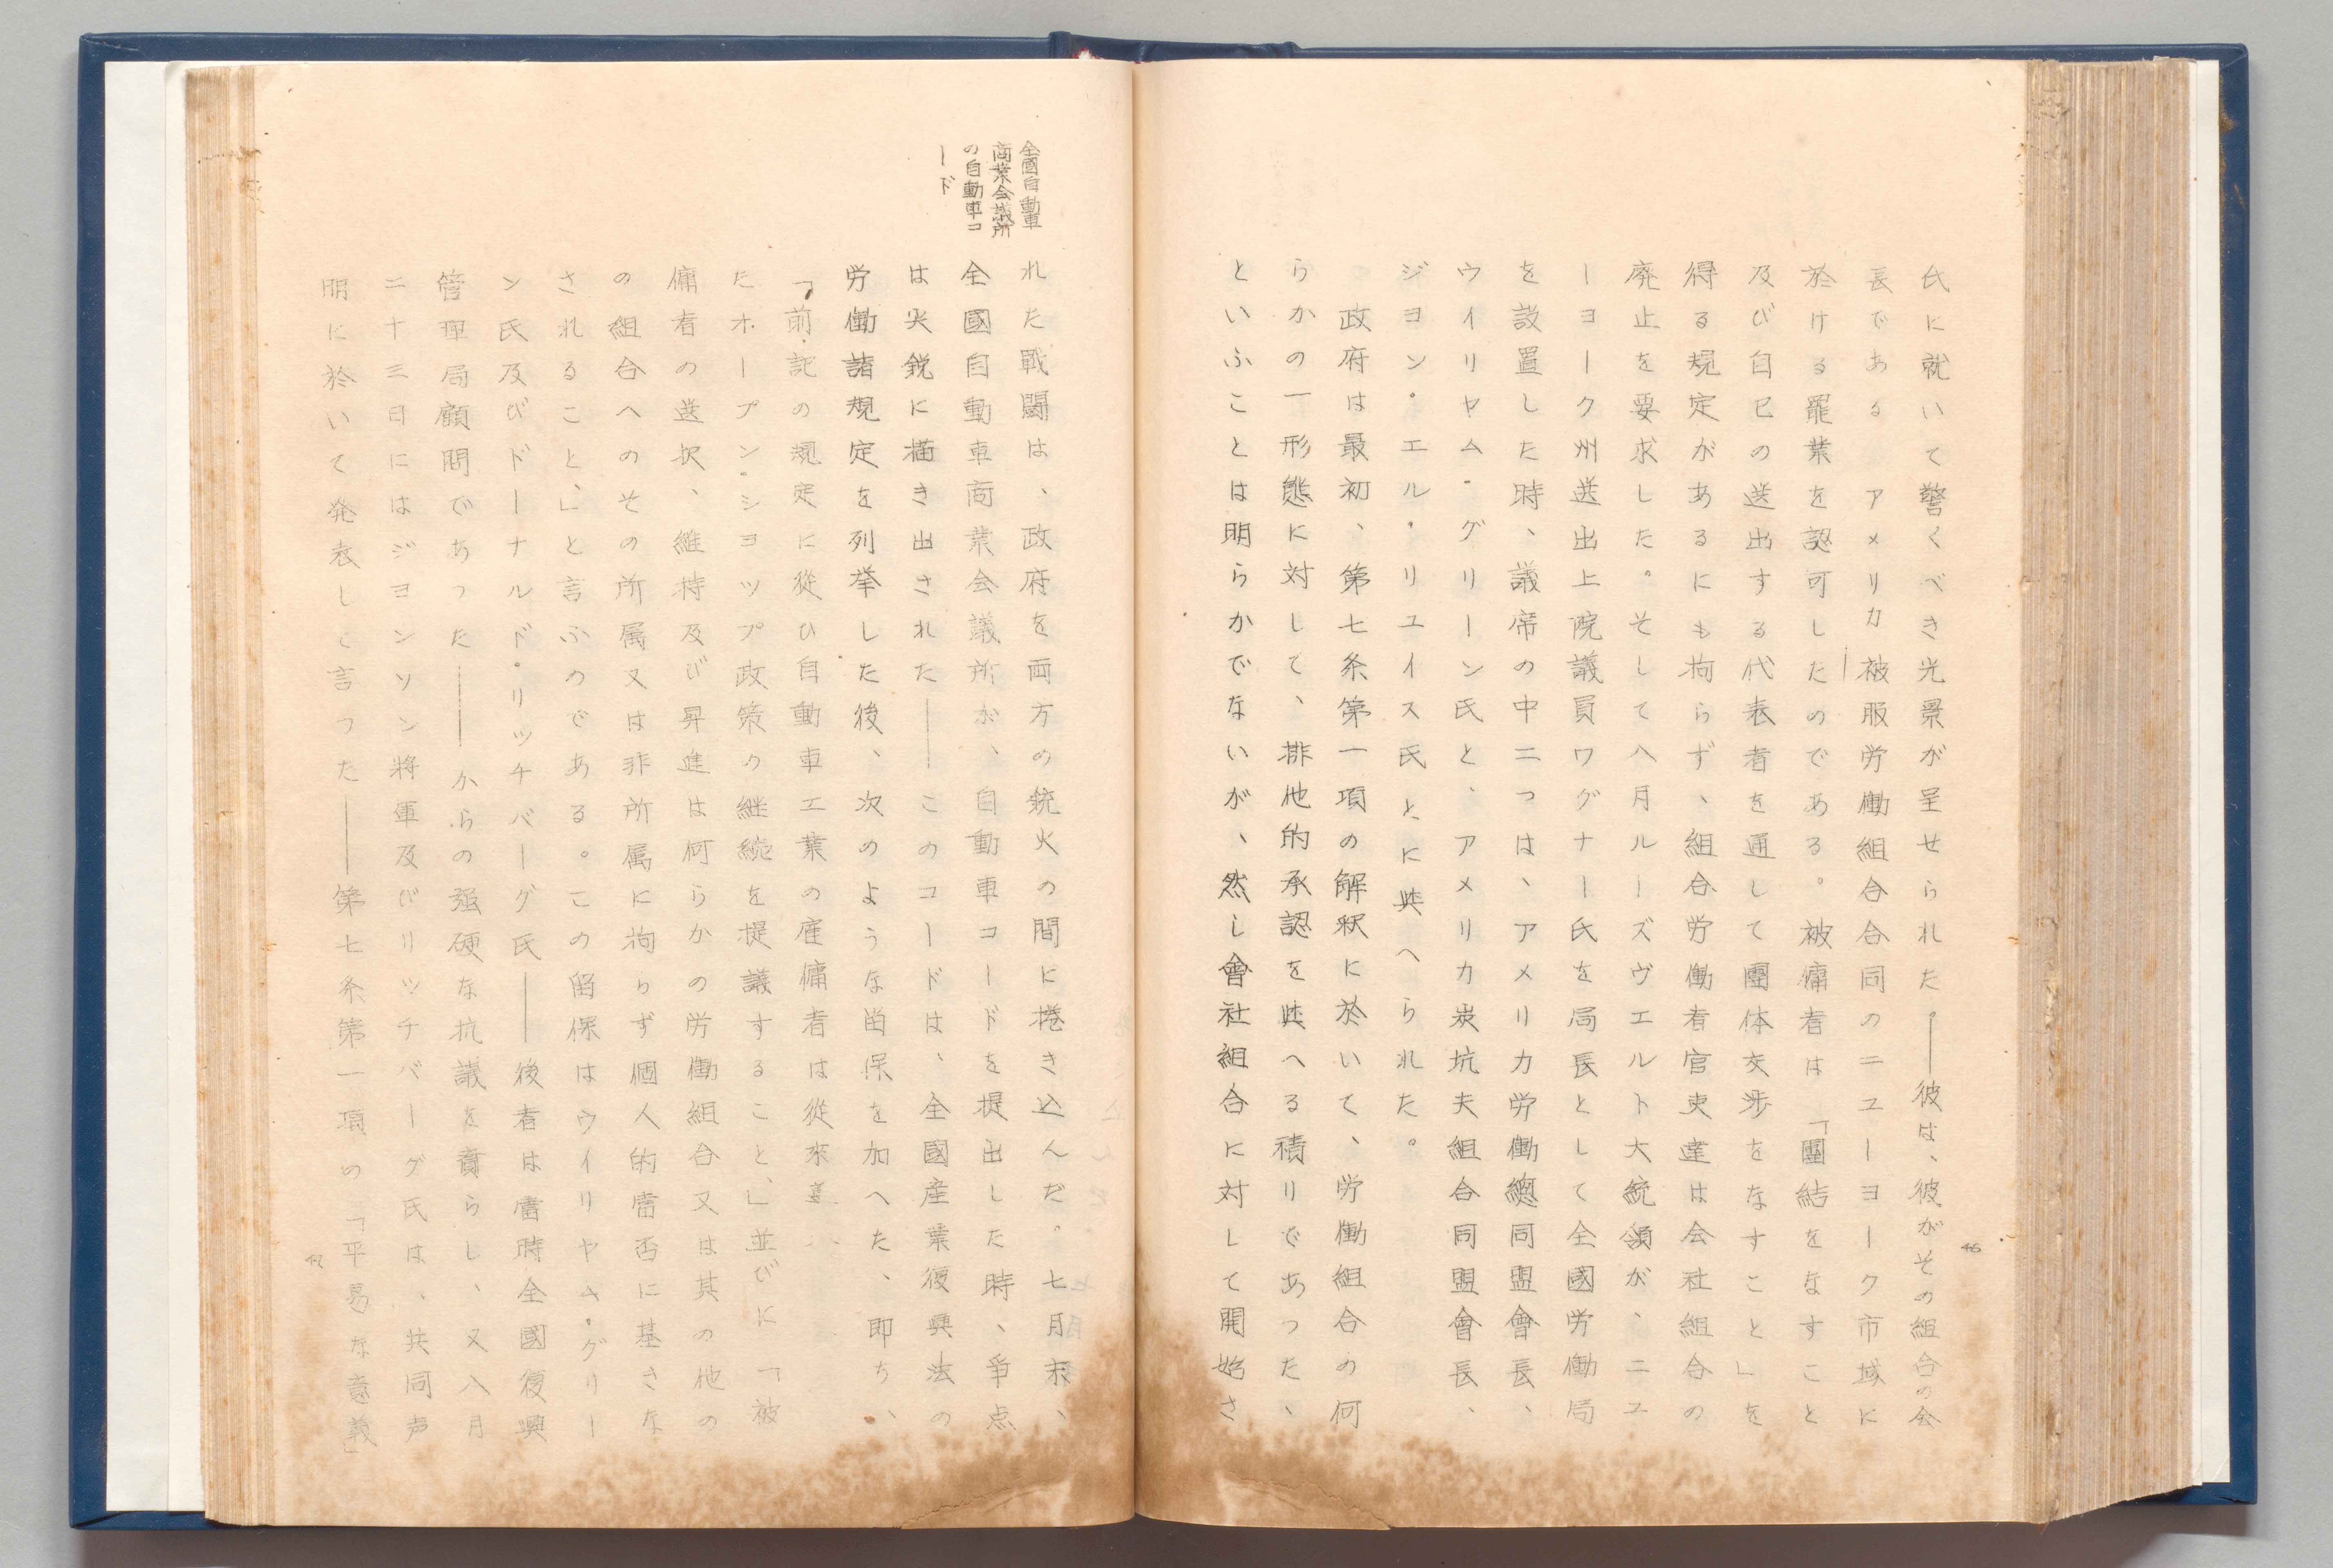 氏に就いて驚くべき光景が呈せられた。――彼は、彼がその組合の会
長である アメリカ被服労働組合合同のニユーヨーク市域に
於ける罷業を認可したのである。被傭者は「團結をなすこと
及び自己の送出する代表者を通して團体交渉をなすこと」を
得る規定があるにも拘らず、組合労働者官吏達は会社組合の
廃止を要求した。そして八月ルーズヴエルト大統領が、ニユ
ーヨーク州送出上院議員ワグナー氏を局長として全國労働局
を設置した時、議席の中二つは、アメリカ労働總同盟會長、
ウイリヤム・グリーン氏と、アメリカ炭坑夫組合同盟會長、
ジヨン・エル・リユイス氏とに與へられた。
政府は最初、第七条第一項の解釈に於いて、労働組合の何
らかの一形態に対して、排他的承認を與へる積りであつた、
といふことは明らかでないが、然し會社組合に対して開始さ
46
全國自動車
商業会議所
の自動車コ
ード
れた戰闘は、政府を両方の銃火の間に捲き込んだ。七月末、
全國自動車商業会議所が、自動車コードを提出した時、爭点
は尖鋭に描き出された――このコードは、全國産業復興法の
労働諸規定を列挙した後、次のような留保を加へた、即ち、
「前記の規定に從ひ自動車工業の雇傭者は從來
たオープン・シヨツプ政策の継続を提議すること、」並びに「被
傭者の送択、維持及び昇進は何らかの労働組合又は其の他の
の組合へのその所属又は非所属に拘らず個人的當否に基さな
されること、」と言ふのである。この留保はウイリヤム・グリー
ン氏及びドーナルド・リツチバーグ氏――後者は當時全國復興
管理局顧問であつた――からの强硬な抗議を齎らし、又八月
二十三日にはジヨンソン將軍及びリツチバーグ氏は、共同声
明に於いて発表して言つた――第七条第一項の「平易な意義」
47